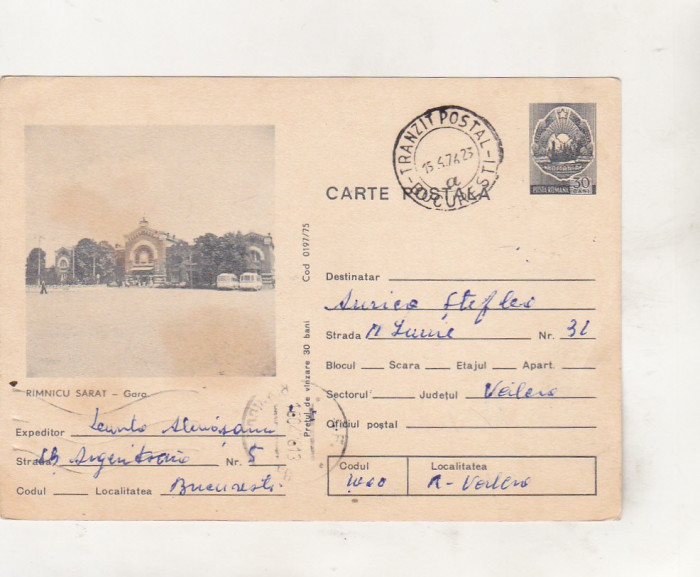 TRANZIT POSTAL
15.4.74.23
a
BUCURESTI
POSTA ROMANA
30
CARTE POSTALA
Cod 0197/75
Pretul de vînzare 30 bani
RIMNICU SARAT – Gara.
Expeditor
Strada Nr. 5
Codul Localitatea Bucuresti
Destinatar
Aurica
Strada Iunie Nr. 31
Blocul Scara Etajul Apart.
Sectorul Județul Vâlcea
Oficiul poștal
Codul Localitatea
1000 R-Vâlcea